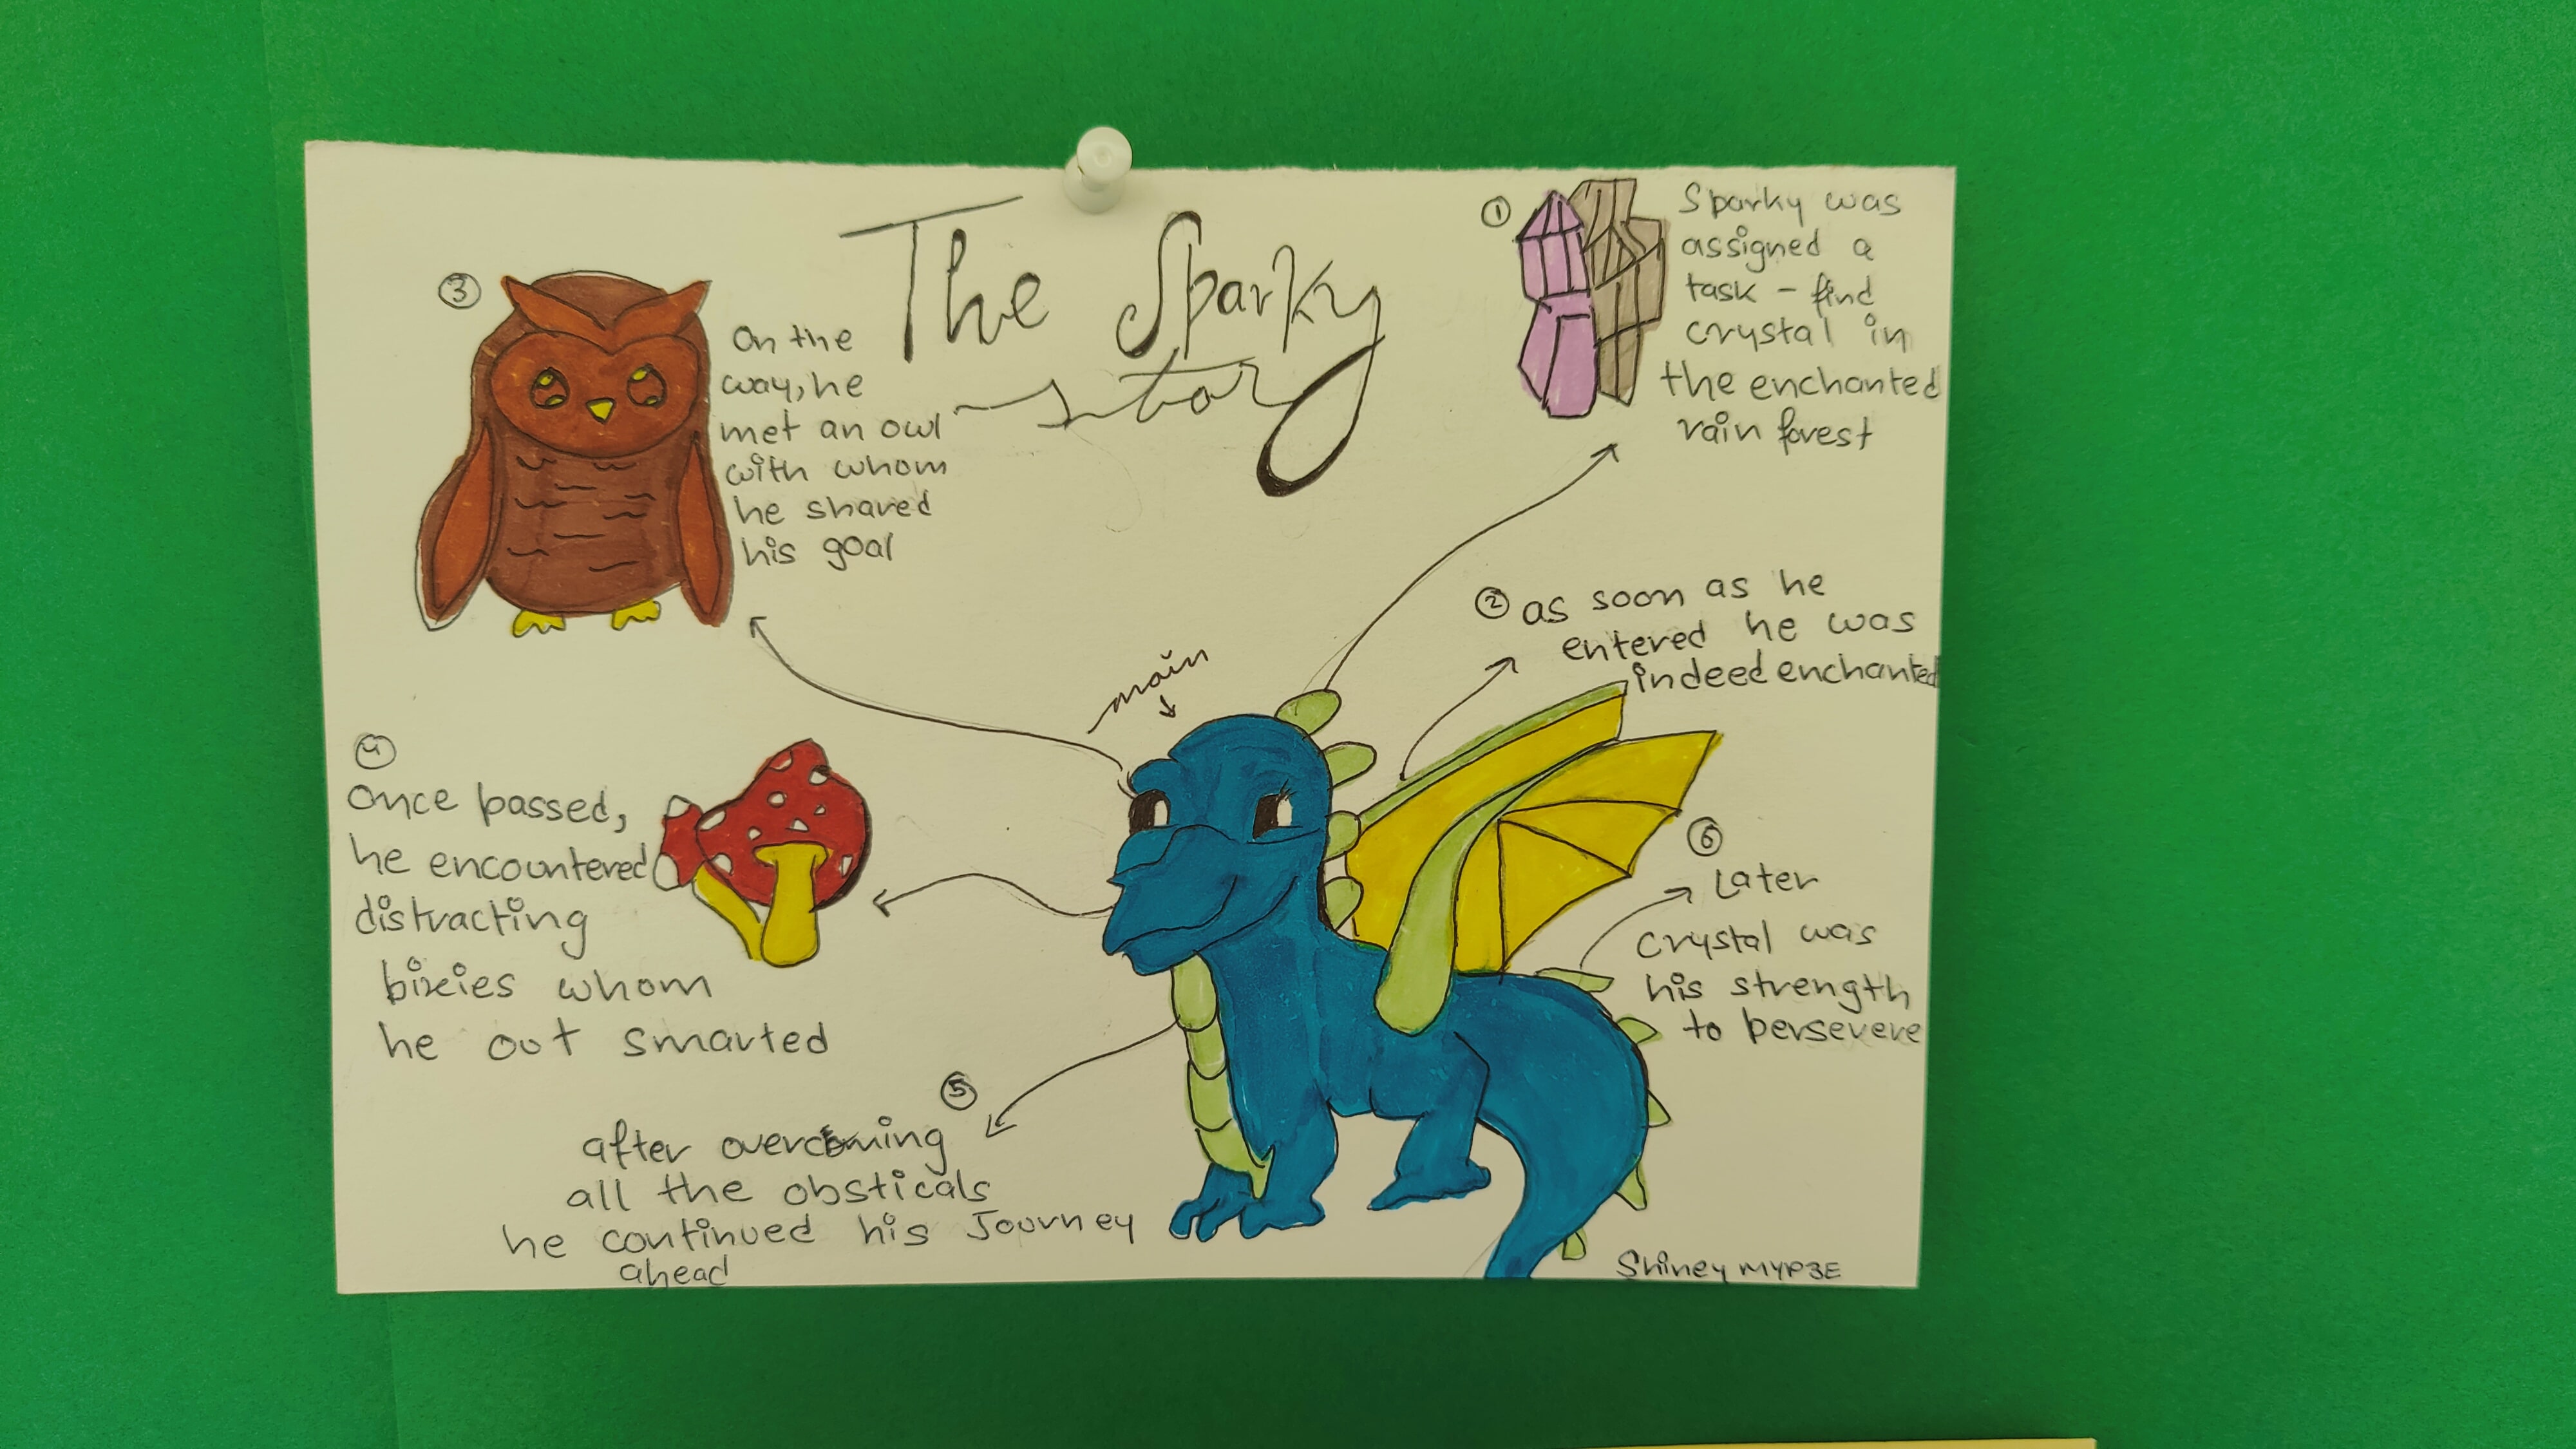 The Sparky
story
①
Sparky was
assigned a
task - find
crystal in
the enchanted
rain forest
② as soon as he
entered he was
indeed enchanted
③
On the
way, he
met an owl
with whom
he shared
his goal
main
④
Once passed,
he encountered
distracting
pixies whom
he out smarted
⑤
after overcoming
all the obsticals
he continued his Journey
ahead
⑥
Later
crystal was
his strength
to persevere
Shiney MYP3E